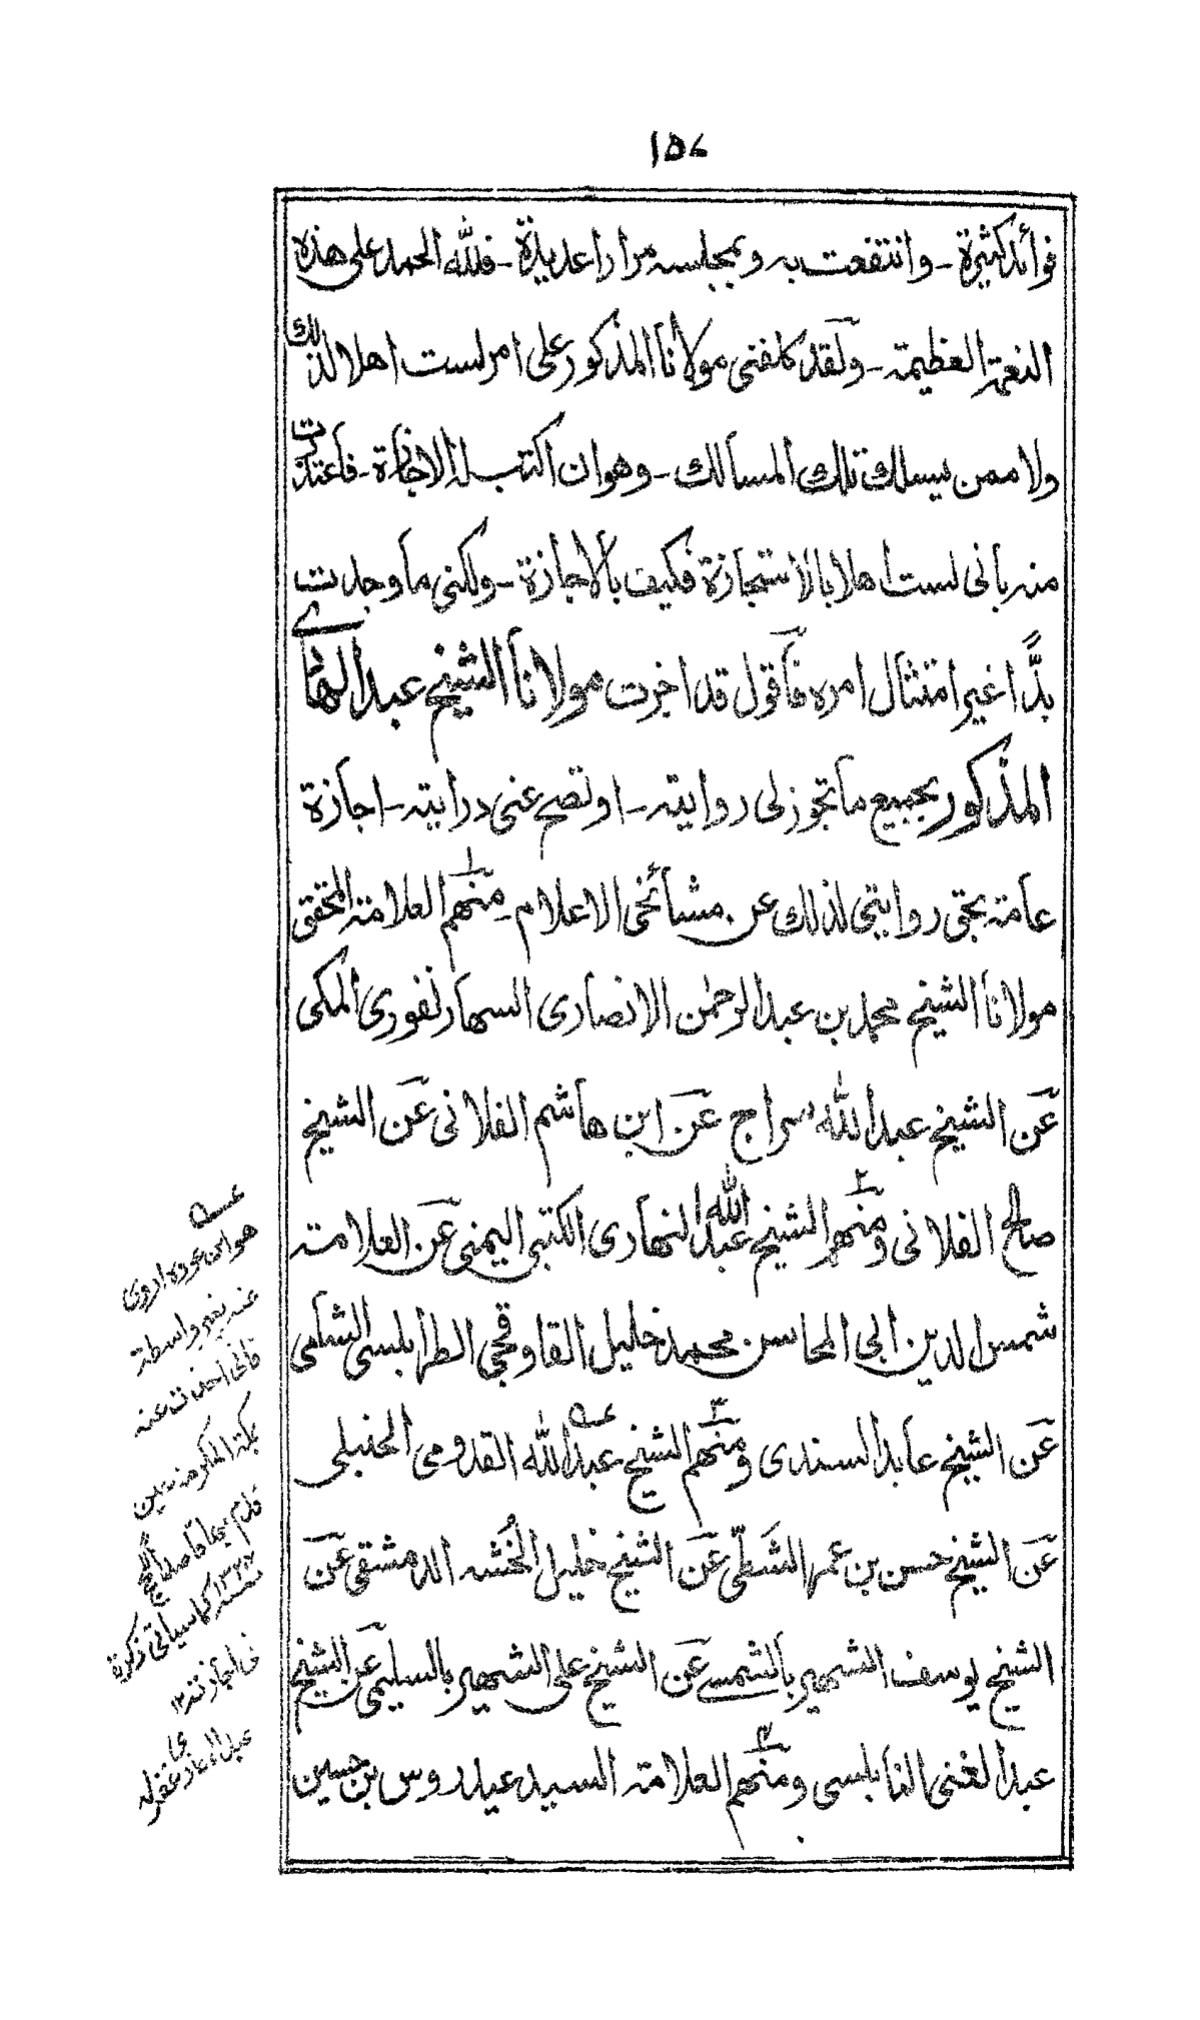 ١٥٧
فوائد كثيرة - وانتفعت به وبمجلسه مرارا عديدة - فلله الحمد على هذه
النعمة العظيمة - ولقد كلفني مولانا المذكور على امر لست اهلا لذلك
ولا ممن يسلك تلك المسالك - وهو ان اكتب له الاجازة - فاعتذرت
منه بانى لست اهلا بالاستجازة فكيف بالاجازة - ولكنى ما وجدت
بدًّا غير امتثال امره فاقول قد اجزت مولانا الشيخ عبد الهادى
المذكور بجميع ما تجوز لى روايته - او تصح عنى درايته - اجازة
عامة بحق روايتى لذلك عن مشائخى الاعلام - منهم ١ العلامة المحقق
مولانا الشيخ محمد بن عبد الرحمٰن الانصارى السهارنفورى المكى
عن الشيخ عبد الله سراج عن ابن هاشم الفلانى عن الشيخ
صالح الفلانى ومنهم ٢ الشيخ عبد الله النهارى الكتبى اليمنى عن العلامة
شمس الدين ابى المحاسن محمد خليل القاوقجى الطرابلسى الشامى
عن الشيخ عابد السندى ومنهم ٣ الشيخ عبد الله عه القدومى الحنبلى
عن الشيخ حسن بن عمر الشَطّى عن الشيخ خليل الخُشه الدمشقى عن
الشيخ يوسف الشهير بالشمسى عن الشيخ على الشهير بالسليمى عن الشيخ
عبد الغنى النابلسى ومنهم ٤ العلامة السيد عيدروس بن حسين
عه
هو ابن عوده اروى
عنه بغير واسطة
فانى اخذت عنه
بمكة المكرمة حين
قدم بها قاصدا للحج
سنة ١٣٢٢ كما سياتى ذكره
فى اجازته ١٢
عبد الهادى غفر له